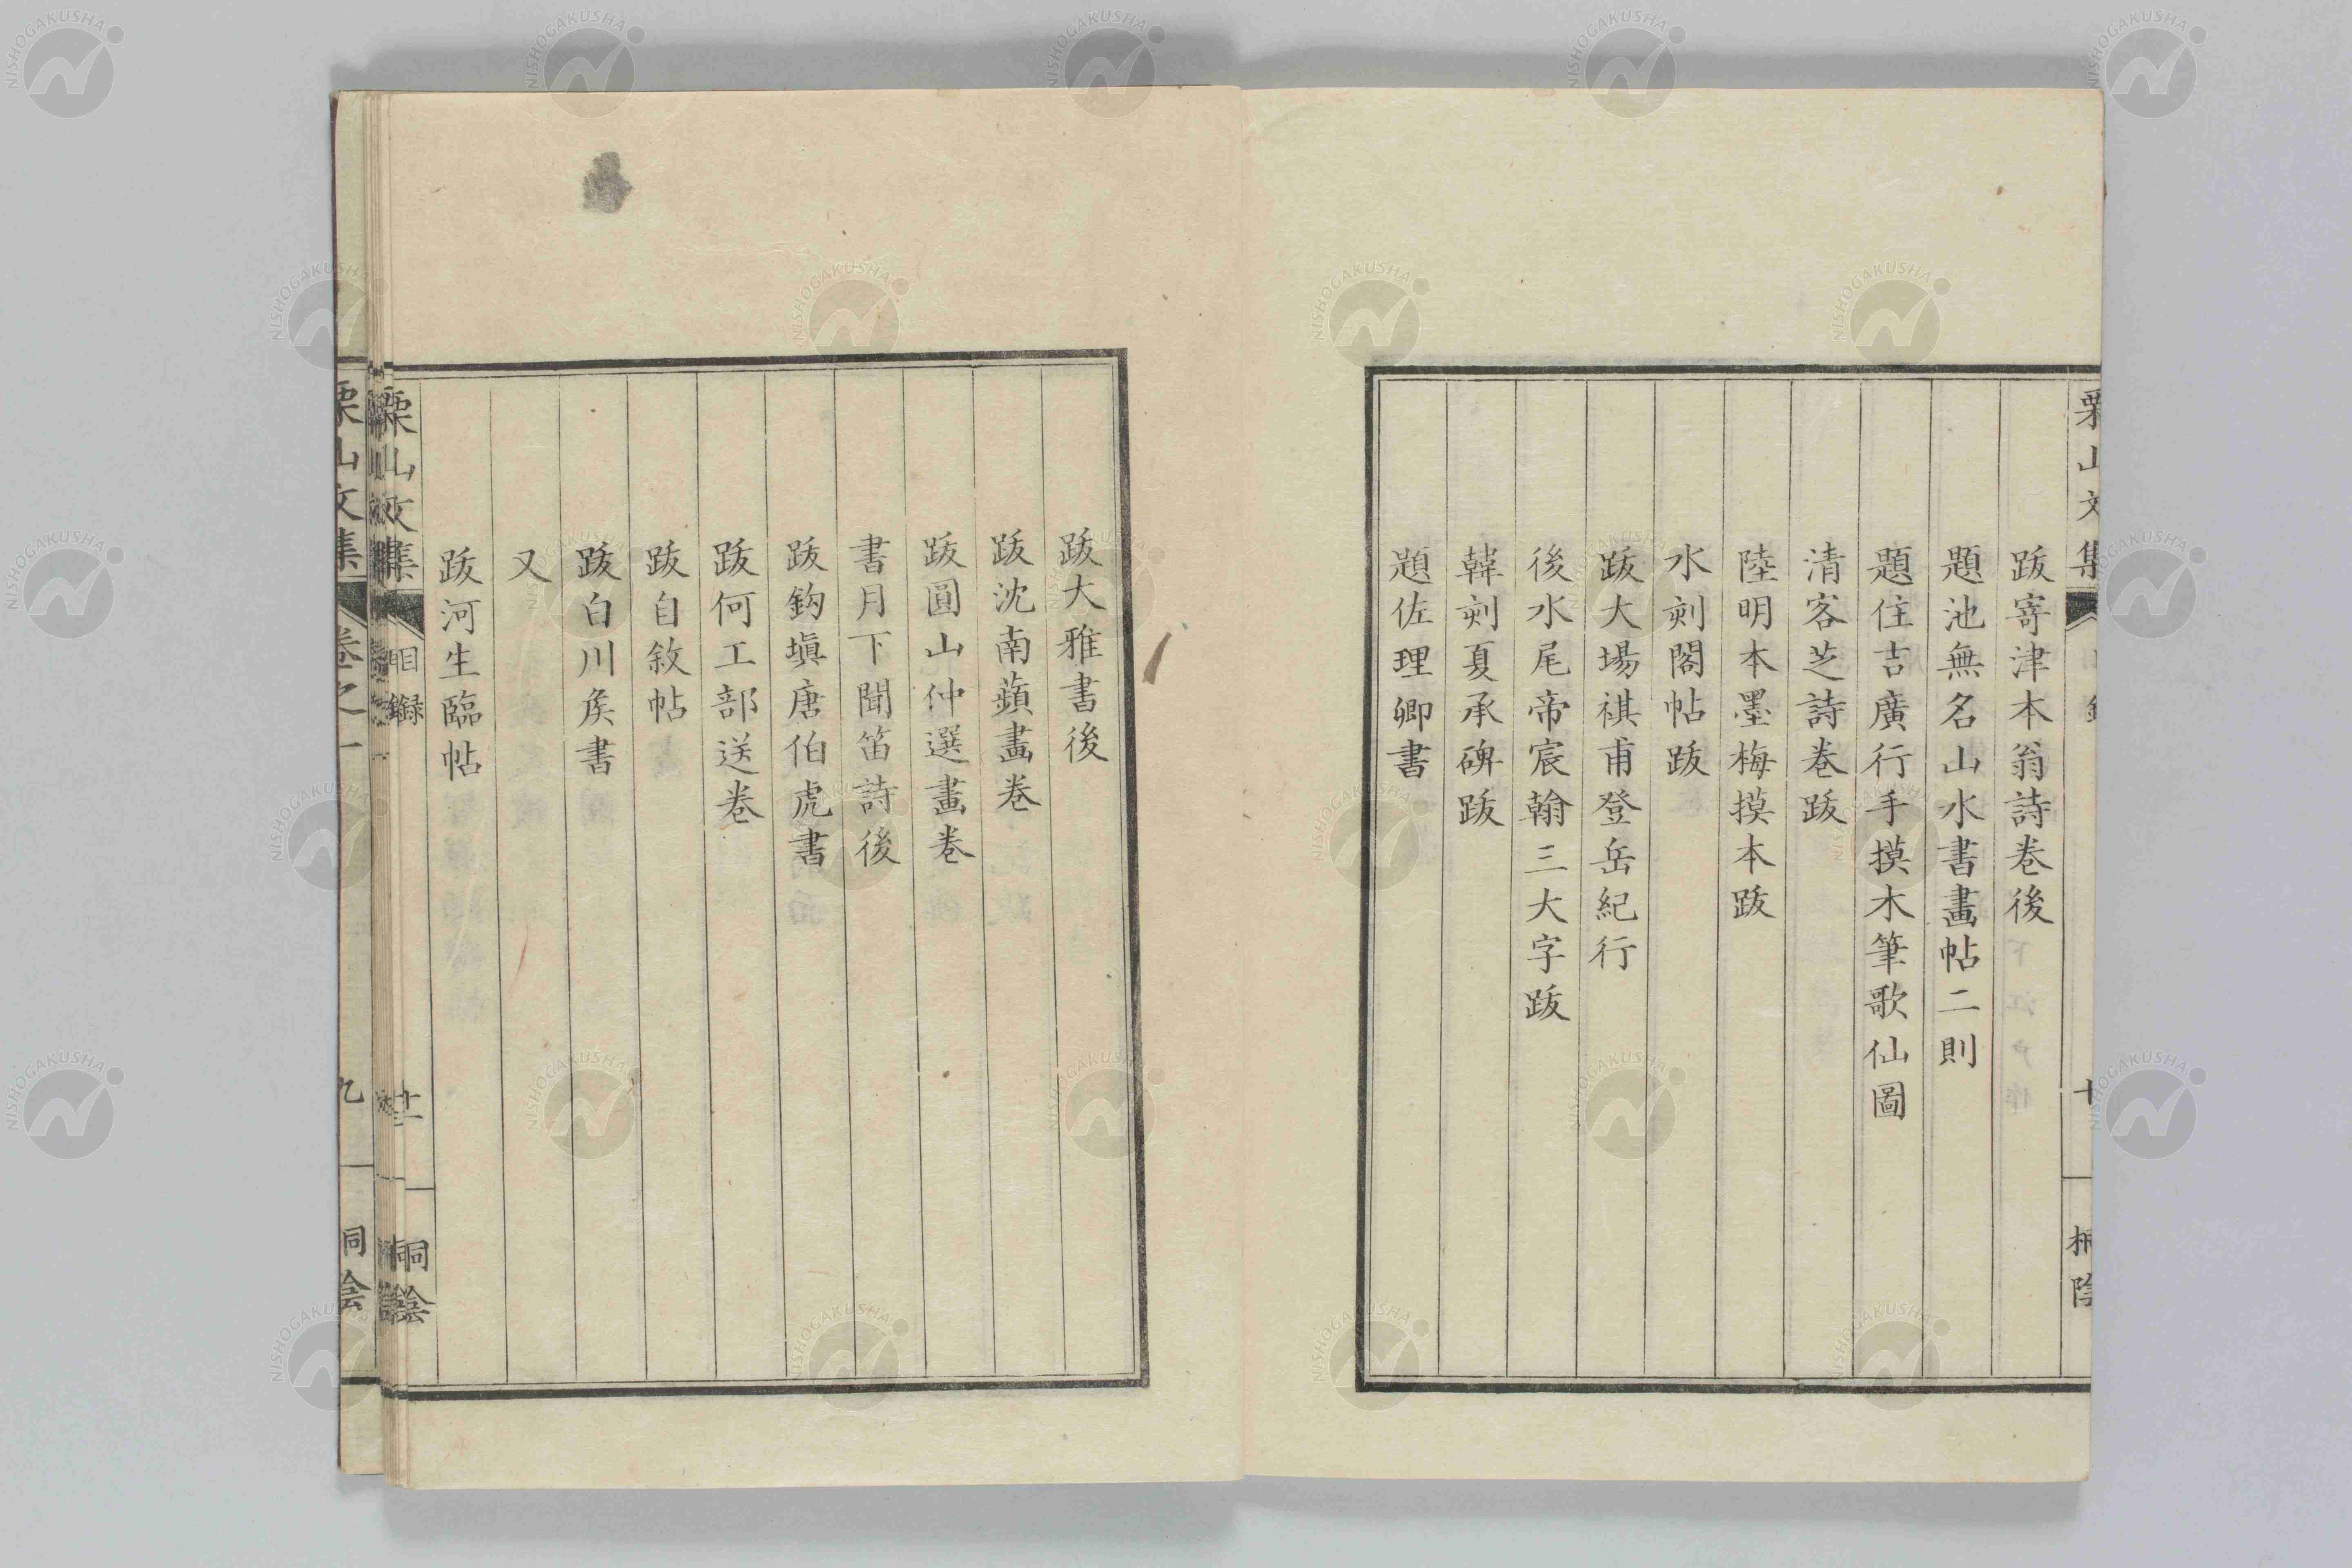 栗山文集
桐陰
跋寄津本翁詩卷後
題池無名山水書畫帖二則
題住吉廣行手摸木筆歌仙圖
清客芝詩卷跋
陸明本墨梅摸本跋
水刻閣帖跋
跋大場祺甫登岳紀行
後水尾帝宸翰三大字跋
韓刻夏承碑跋
題佐理卿書
跋大雅書後
跋沈南蘋畫卷
跋圓山仲選畫卷
書月下聞笛詩後
跋鈎塡唐伯虎書
跋何工部送卷
跋自敘帖
跋白川矦書
又
跋河生臨帖
栗山文集
目錄
桐陰
栗山文集
卷之一
九
桐陰
NISHOGAKUSHA